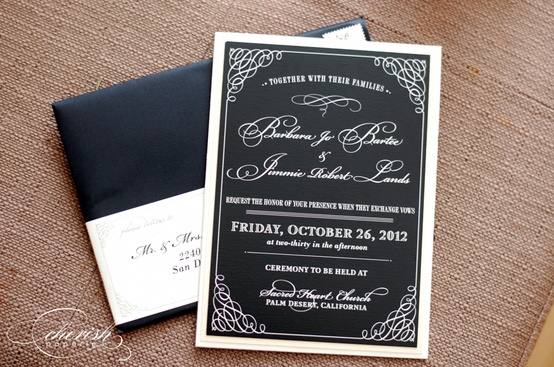 TOGETHER WITH THEIR FAMILIES
Barbara Jo Bartee
&
Jimmie Robert Lands
REQUEST THE HONOR OF YOUR PRESENCE WHEN THEY EXCHANGE VOWS
FRIDAY, OCTOBER 26, 2012
at two-thirty in the afternoon
CEREMONY TO BE HELD AT
Sacred Heart Church
PALM DESERT, CALIFORNIA
please deliver to
Mr. & Mrs.
2240
San D
cherish
PAPERIE